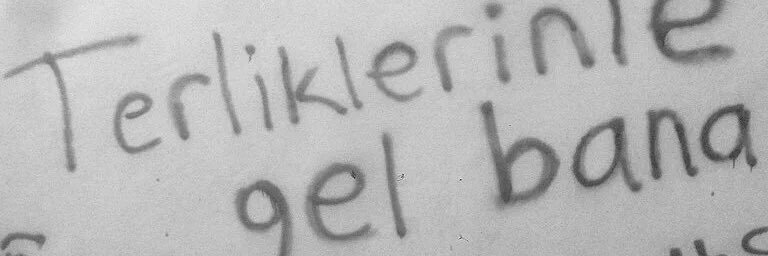 Terliklerinle
gel bana